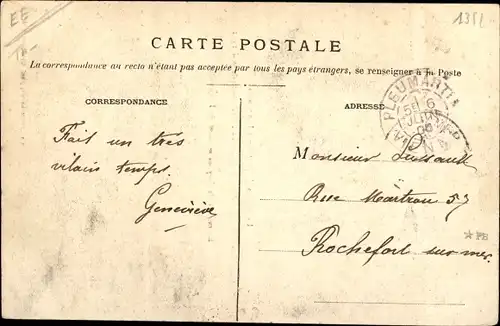 EE
1352
CARTE POSTALE
La correspondance au recto n'étant pas acceptée par tous les pays étrangers, se renseigner à la Poste
CORRESPONDANCE
ADRESSE
PLEUMARTIN
6
Fait un très
vilain temps.
Geneviève
Monsieur
Rue Martrou 57
Rochefort sur mer.
*FB